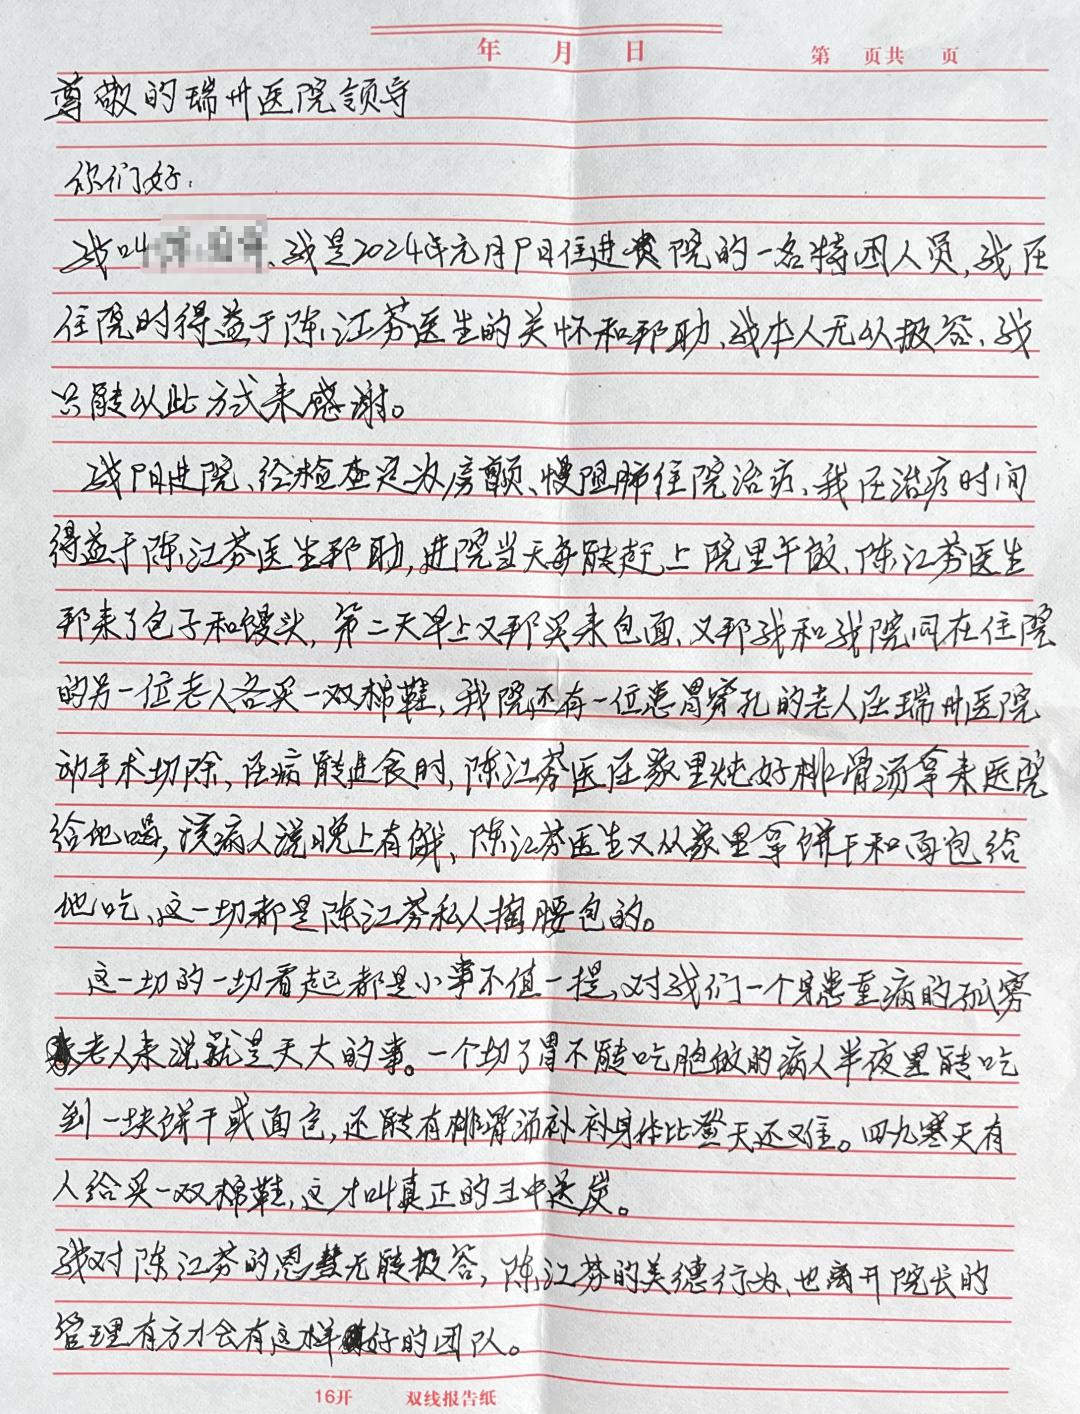 年 月 日
第 页共 页
尊敬的瑞州医院领导
你们好:
我叫 、我是2024年元月8日住进贵院的一名特困人员,我在
住院时得益于陈江芬医生的关怀和邦助、我本人无从报答、我
只能以此方式来感谢。
我 进院、经检查定为房颤、慢阻肺住院治疗、我在治疗时间
得益于陈江芬医生邦助,进院当天每能赶上院里午饭、陈江芬医生
邦来了包子和馒头,第二天早上又邦买来包面、又邦我和我院同在住院
的另一位老人各买一双棉鞋,我院还有一位患胃穿孔的老人在瑞州医院
动手术切除,在病能进食时,陈江芬医在家里炖好排骨汤拿来医院
给他喝,该病人说晚上有饿、陈江芬医生又从家里拿饼干和面包给
他吃、这一切都是陈江芬私人掏腰包的。
这一切的一切看起都是小事不值一提,对我们一个身患重病的孤寡
老人来说就是天大的事。一个切了胃不能吃胞饭的病人半夜里能吃
到一块饼干或面包,还能有排骨汤补补身体比登天还难。四九寒天有
人给买一双棉鞋,这才叫真正的 中送炭。
我对陈江芬的恩 无能报答,陈江芬的美德行为、也离开院长的
管理有方才会有这样好的团队。
16开 双线报告纸